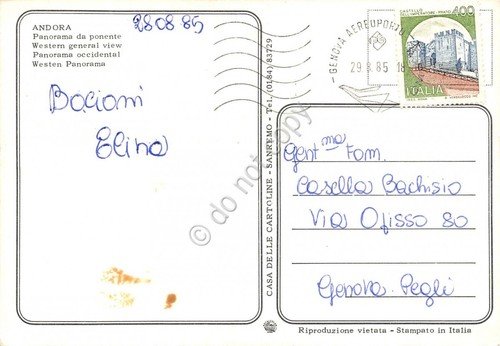 ANDORA
Panorama da ponente
Western general view
Panorama occidental
Westen Panorama
280885
Bacioni
Elina
CASA DELLE CARTOLINE - SANREMO - Tel. (0184) 83729
GENOVA AEROPORTO
29.8.85 18
400
ITALIA
do not copy
Gent.ma Fam.
Casella Bachisio
Via Ofisso 80
Genova Pegli
Riproduzione vietata - Stampato in Italia